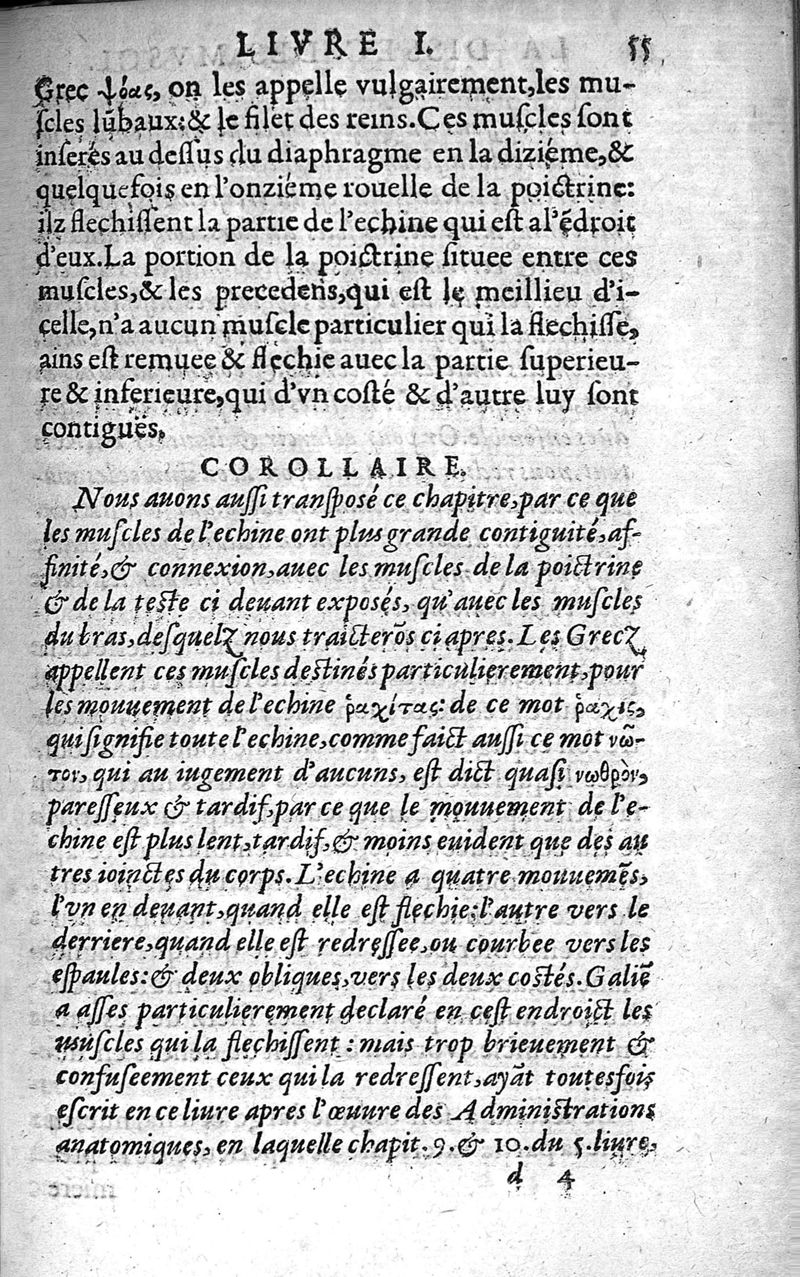 LIVRE I. 55
Grec ψόας, on les appelle vulgairement, les mu-
ſcles lũbaux: & le filet des reins. Ces muſcles ſont
inſerés au deſſus du diaphragme en la diziéme, &
quelquefois en l'onziéme rouelle de la poictrine:
ilz flechiſſent la partie de l'echine qui eſt al'ẽdroit
d'eux. La portion de la poictrine ſituee entre ces
muſcles, & les precedens, qui eſt le meillieu d'i-
celle, n'a aucun muſcle particulier qui la flechiſſe,
ains eſt remuee & flechie auec la partie ſuperieu-
re & inferieure, qui d'vn coſté & d'autre luy ſont
contiguës.
COROLLAIRE.
Nous auons auſſi tranſpoſé ce chapitre, par ce que
les muſcles de l'echine ont plus grande contiguité, af-
finité, & connexion, auec les muſcles de la poictrine
& de la teſte ci deuant exposés, qu'auec les muſcles
du bras, deſquelz nous traicterõs ci apres. Les Grecz
appellent ces muſcles deſtinés particulierement, pour
les mouuement de l'echine ῥαχίτας: de ce mot ῥάχις,
qui ſignifie toute l'echine, comme faict auſſi ce mot νῶ-
τον, qui au iugement d'aucuns, eſt dict quaſi νωθρὸν,
pareſſeux & tardif, par ce que le mouuement de l'e-
chine eſt plus lent, tardif, & moins euident que des au
tres ioinctes du corps. L'echine a quatre mouuemẽs,
l'vn en deuant, quand elle eſt flechie: l'autre vers le
derriere, quand elle eſt redreſſee, ou courbee vers les
eſpaules: & deux obliques, vers les deux coſtés. Galiẽ
a aſſes particulierement declaré en ceſt endroict les
muſcles qui la flechiſſent : mais trop brieuement &
confuſeement ceux qui la redreſſent, ayãt toutesfois
eſcrit en ce liure apres l'œuure des Adminiſtrations
anatomiques, en laquelle chapit. 9. & 10. du 5. liure,
d 4